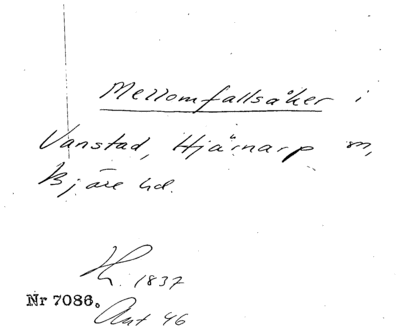 Mellomfallsåker i
Vanstad, Hjärnarp m,
Bjäre hd.
H. 1837
Nr 7086.
Ant 46